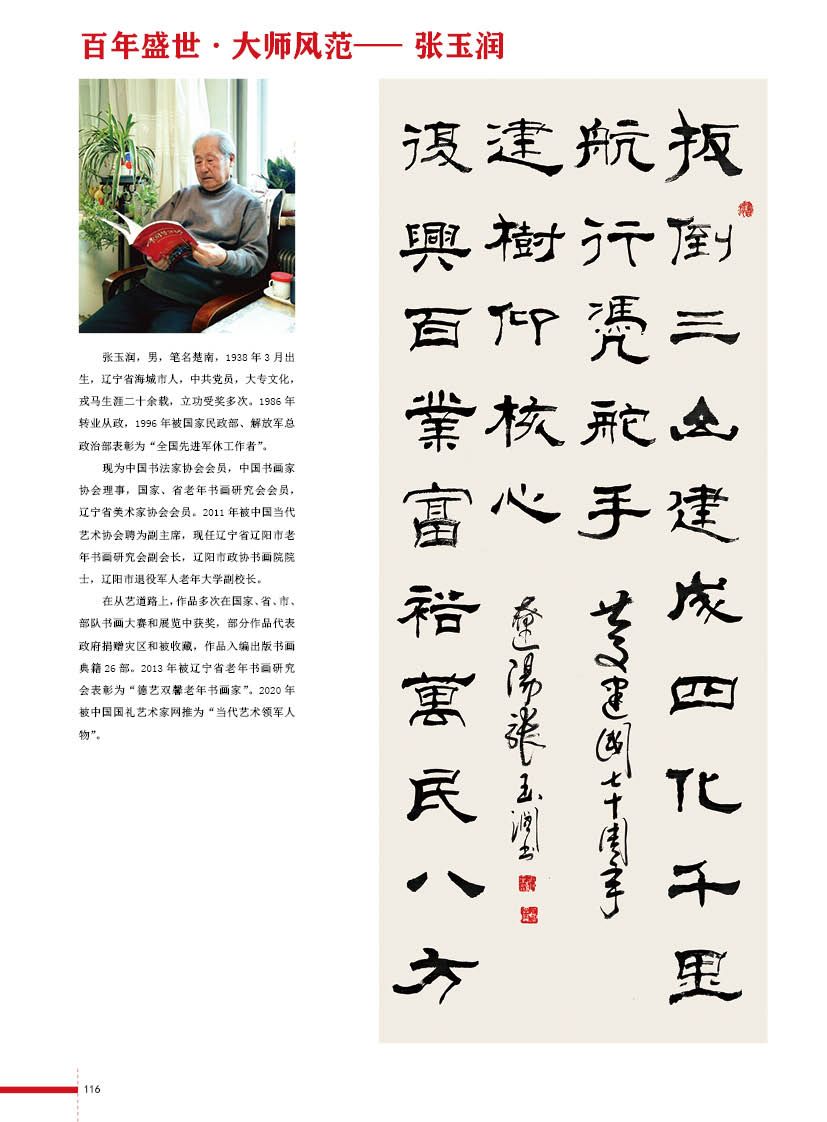 百年盛世·大师风范—— 张玉润
张玉润，男，笔名楚南，1938 年 3 月出
生，辽宁省海城市人，中共党员，大专文化，
戎马生涯二十余载，立功受奖多次。1986 年
转业从政，1996 年被国家民政部、解放军总
政治部表彰为“全国先进军休工作者”。
现为中国书法家协会会员，中国书画家
协会理事，国家、省老年书画研究会会员，
辽宁省美术家协会会员。2011 年被中国当代
艺术协会聘为副主席，现任辽宁省辽阳市老
年书画研究会副会长，辽阳市政协书画院院
士，辽阳市退役军人老年大学副校长。
在从艺道路上，作品多次在国家、省、市、
部队书画大赛和展览中获奖，部分作品代表
政府捐赠灾区和被收藏，作品入编出版书画
典籍 26 部。2013 年被辽宁省老年书画研究
会表彰为“德艺双馨老年书画家”。2020 年
被中国国礼艺术家网推为“当代艺术领军人
物”。
扳倒三山建成四化千里
航行憑舵手
慶建國七十周年
復興百業富裕萬民八方
建樹仰核心
遼陽張玉潤書
116